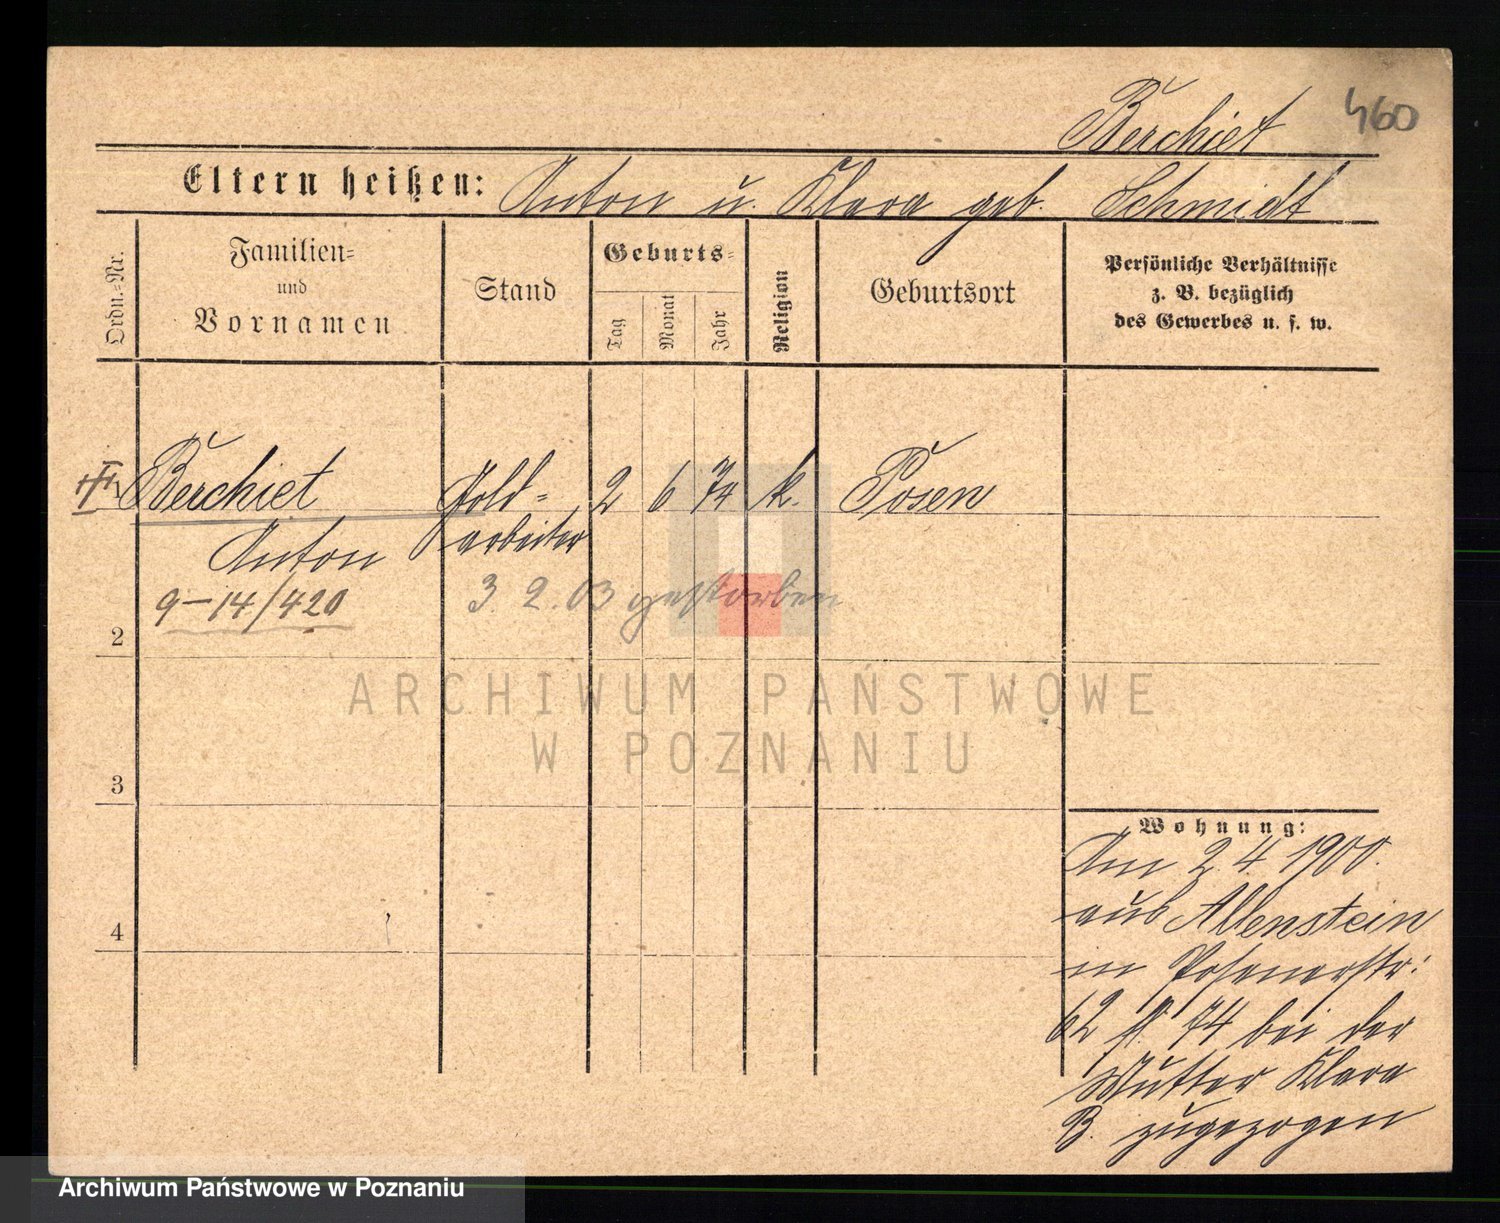 460
Berchiet
Eltern heißen: Anton u. Klara geb. Schmidt
Ordn.-Nr.
Familien-
und
Vornamen
Stand
Geburts-
Tag
Monat
Jahr
Religion
Geburtsort
Persönliche Verhältnisse
z. B. bezüglich
des Gewerbes u. s. w.
Berchiet Gold- 2 6 74 k. Posen
Anton arbeiter
9-14/420 3. 2. 03 gestorben
2
ARCHIWUM PAŃSTWOWE
W POZNANIU
3
4
Wohnung:
Am 2. 4. 1900.
aus Allenstein
in Posenerstr.
62 74 bei der
Mutter Klara
B. zugezogen
Archiwum Państwowe w Poznaniu